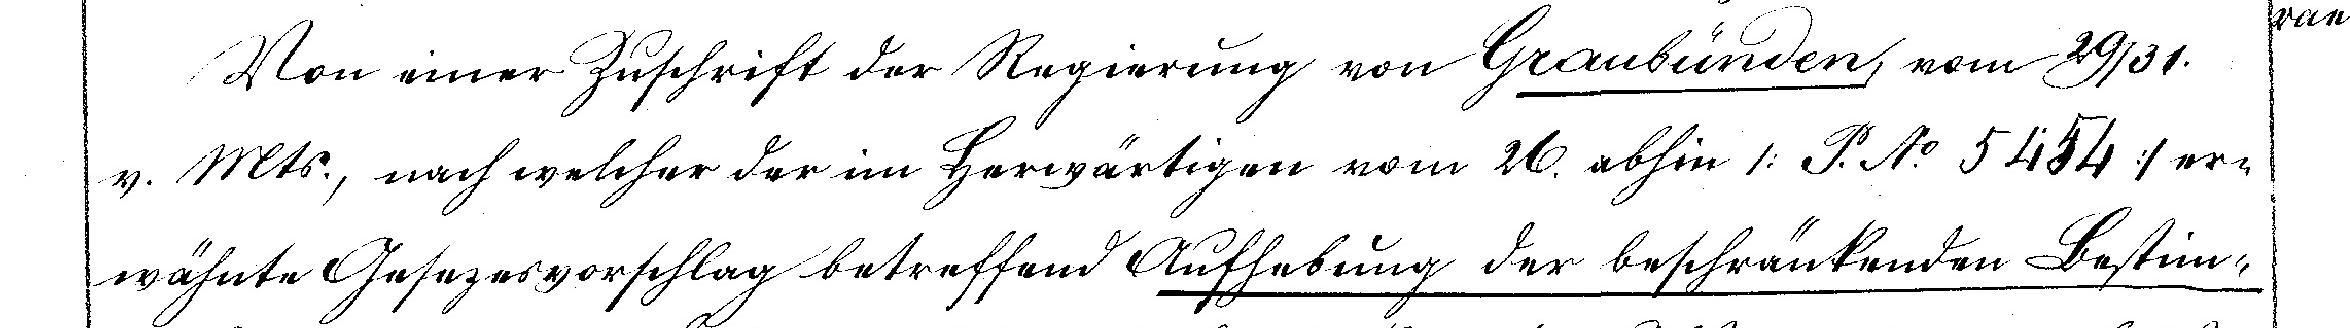 Von einer Zuschrift der Regierung von Graubünden, vom 29/31.
v. Mts., nach welcher der im Herwärtigen vom 26. abhin /: P. No 5454 :/ er-
wähnte Gesezesvorschlag betreffend Aufhebung der beschränkenden Bestim-